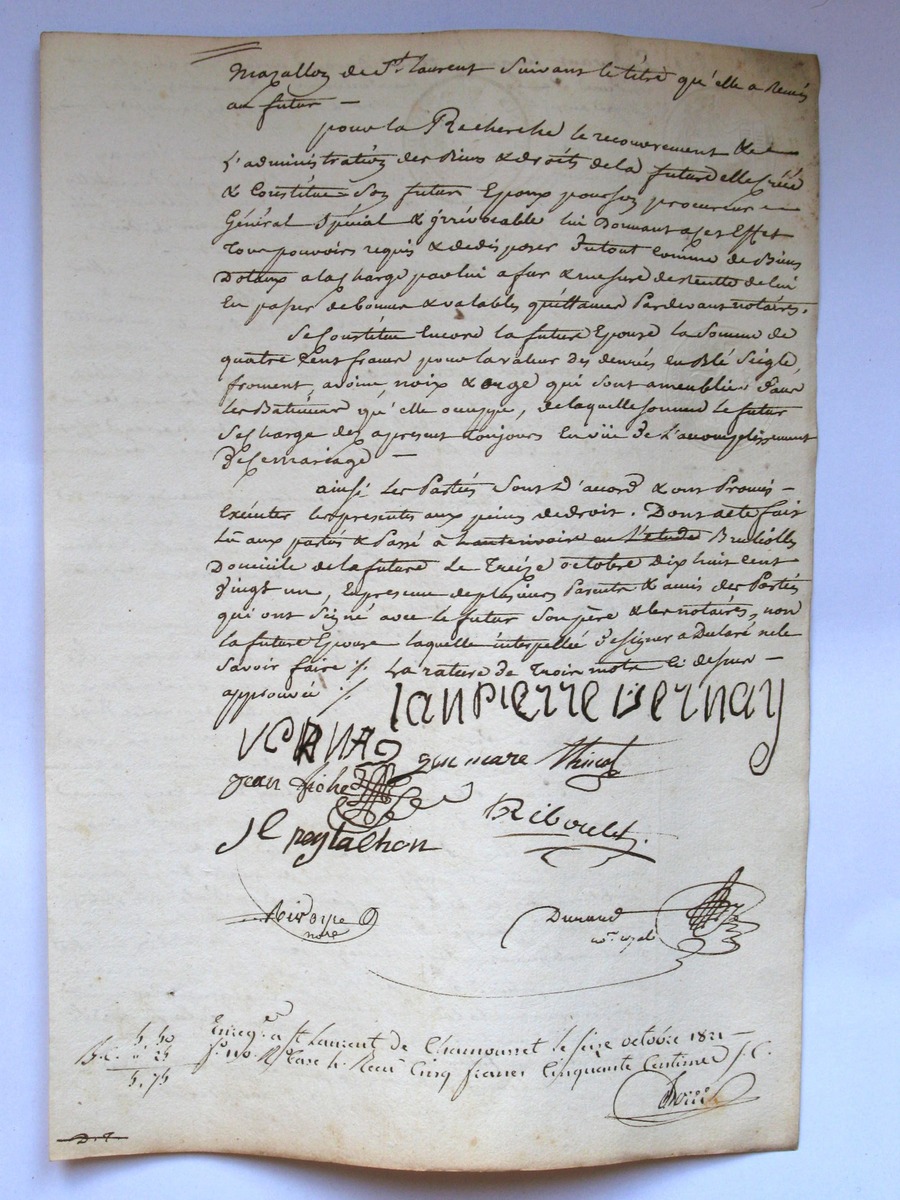 Mazallon de St. Laurent suivant le titre qu'elle a Remis
au futur —
pour la Recherche le recouvrement & —
L'administration des Biens & droits de la future elle Créé
& Constitue son futur Epoux pour son procureur —
Général Spécial & jrrévocable lui Donnant a cet Effet
Tous pouvoirs requis & de disposer du tout comme de Biens
Dotaux a la charge par lui a fur & mesure de recette de lui
En passer de bonnes & valables quittances Pardevant notaires.
Se Constitue Encore la future Epouse la somme de
quatre Cent francs pour la valeur des denrées en Blé Seigle,
froment, avoine, noix & orge qui sont ameublies dans
les Batimens qu'elle occuppe, de laquelle somme le futur
Se charge des apresent toujours En vüe de L'accomplissement
De Ce mariage —
ainsi les Parties sont D'accord & ont Promis —
Exécuter les presentes aux peines de droit. Dont acte fait
Lu aux parties & Passé à en l'étude Brullioles
Domicile de la future Le Treize octobre dix huit cent
Vingt un, En presence de plusieurs Parents & amis des Parties
qui ont Signé avec le futur Son père & les notaires, non
la future Epouse laquelle interpellée de signer a Déclaré ne le
Savoir faire ./. La rature de Trois mots Ci dessus —
approuvée ./.
Jan Pierre Vernay
VERNAY
Jean
Riboulet
J C peytachon
Durand
Enregé. a St Laurent de Chamousset le seize octobre 1821 —
fo. 110. Ro Case 4. Recu Cinq francs Cinquante Centimes
5,50
5,75
D. T.